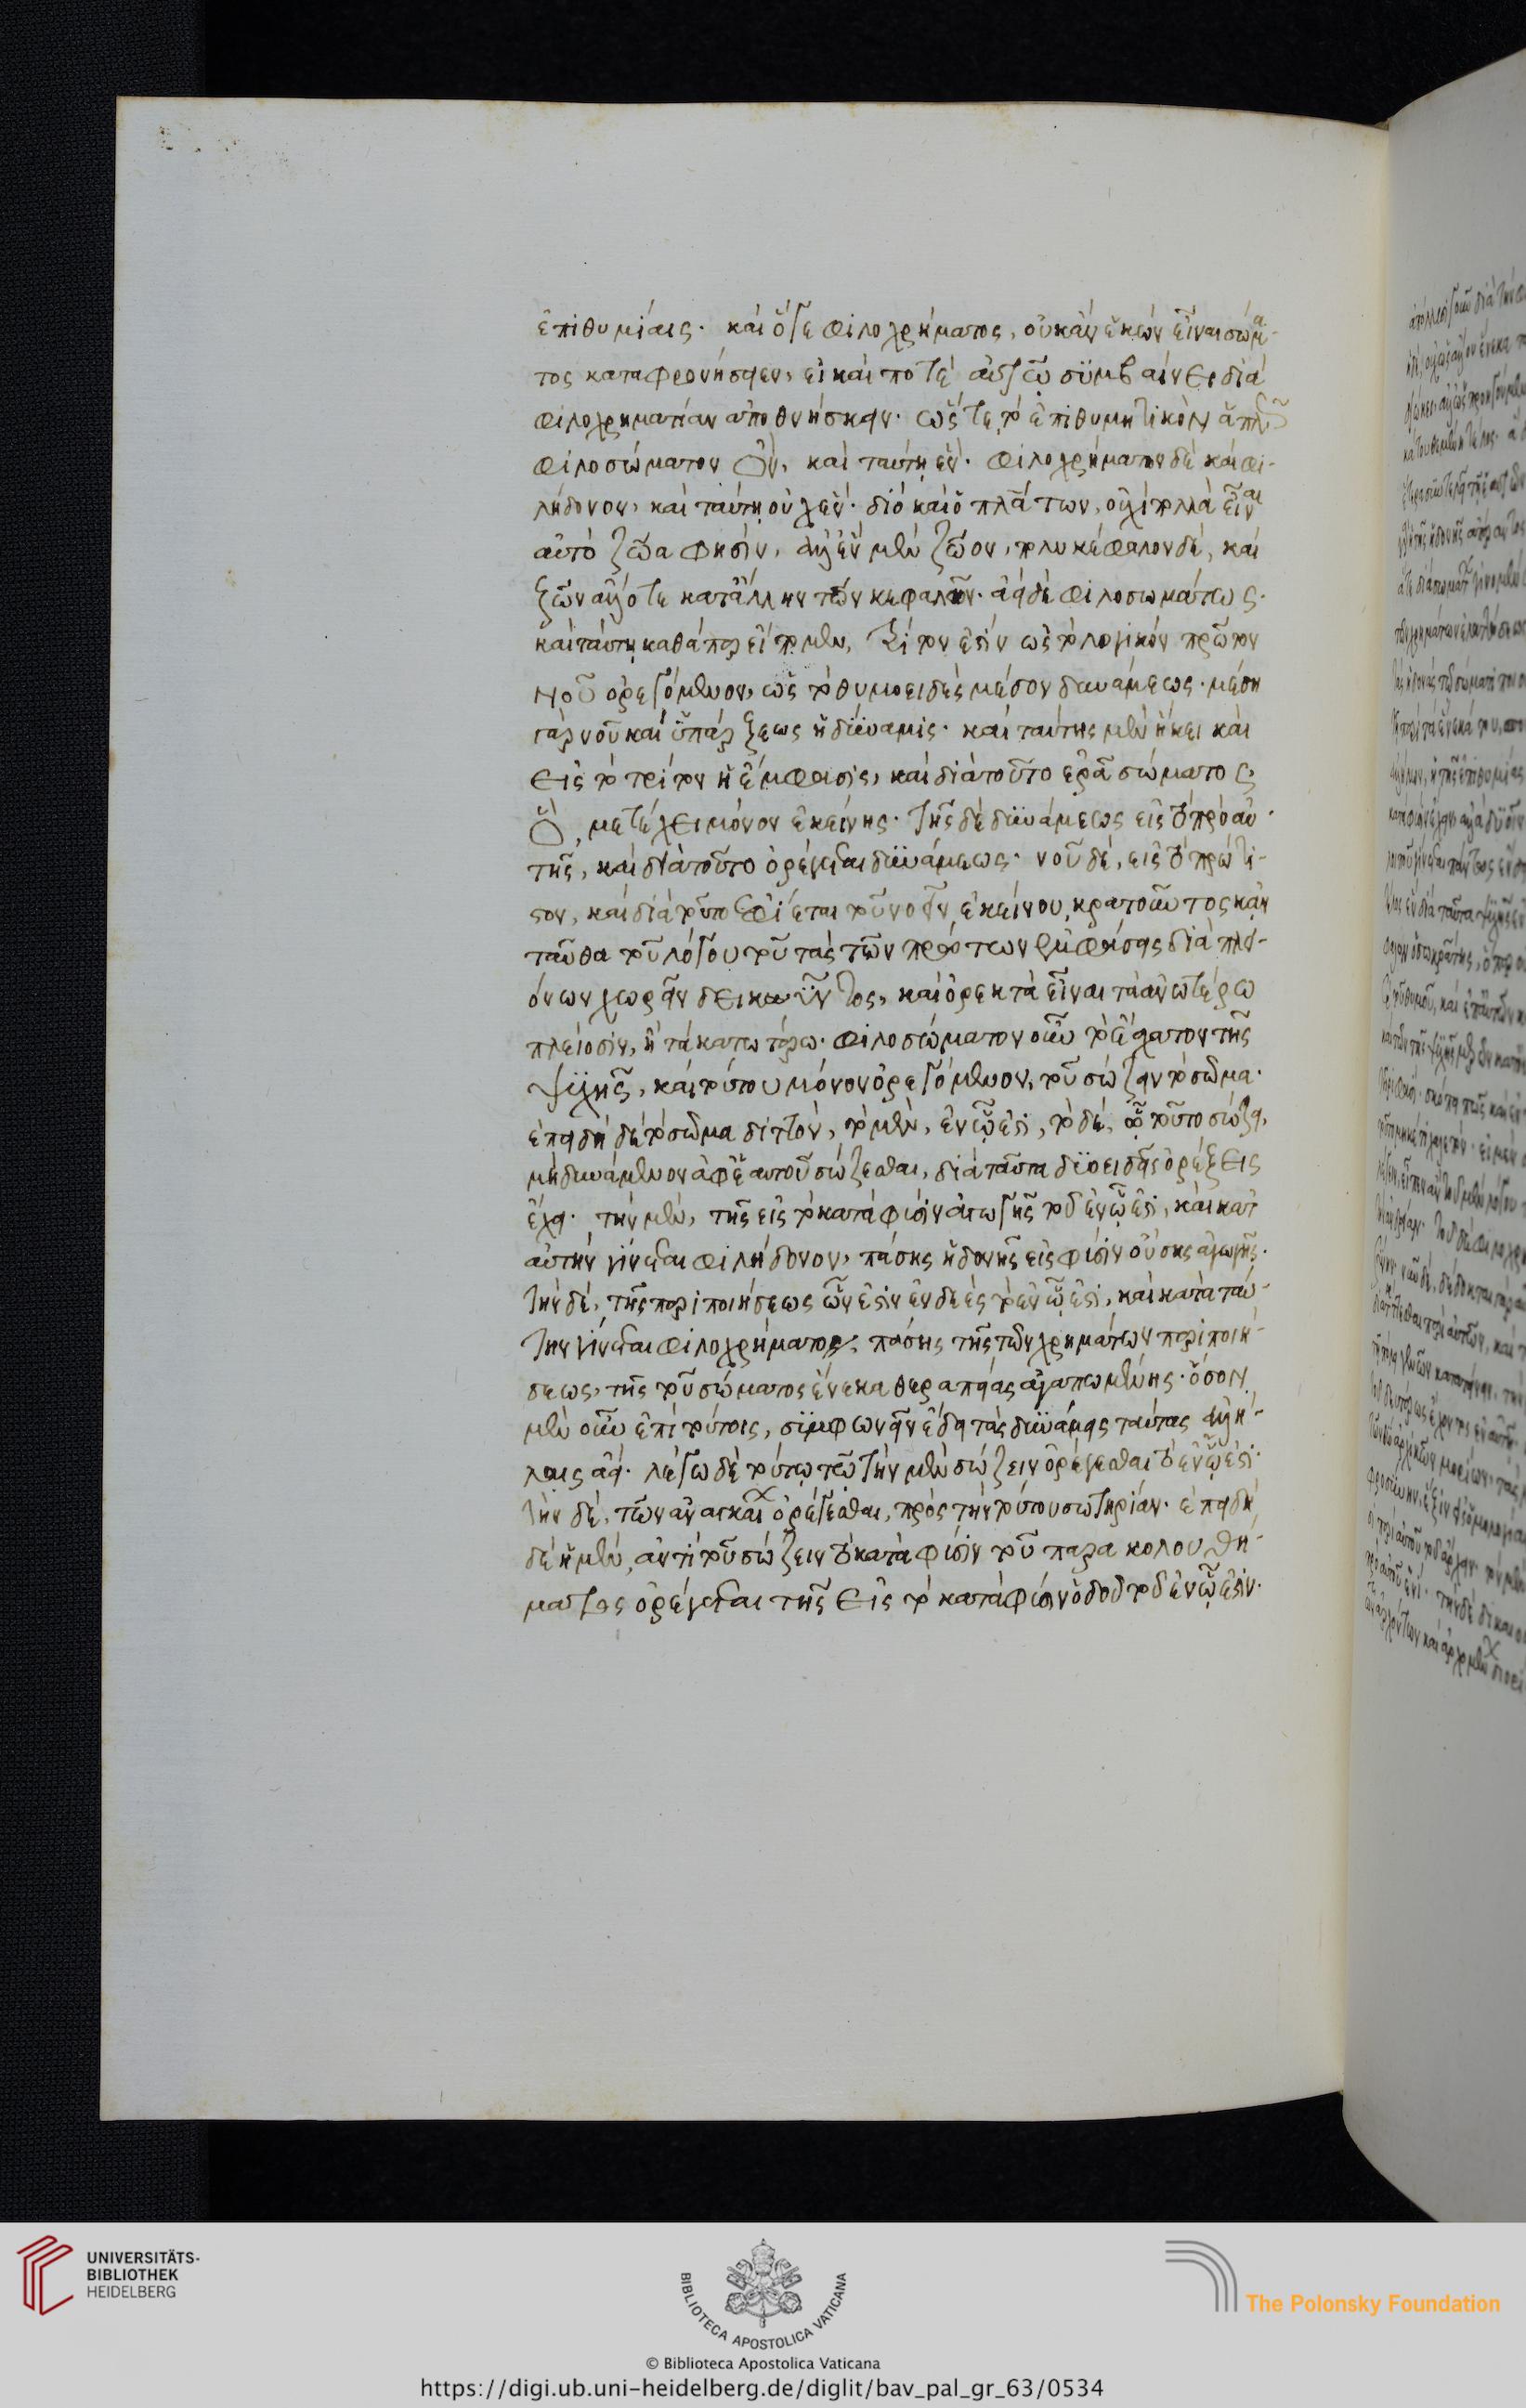 ἐπιθυμίαις. καὶ ὅγε φιλοχρήματος, οὐκ ἂν ἑκὼν εἶναι σώμα-
τος καταφρονήσειεν, εἰ καί ποτε αὐτῷ συμβαίνει διὰ
φιλοχρηματίαν ἀποθνήσκειν. ὥστε τὸ ἐπιθυμητικὸν ἁπλῶς
φιλοσώματον ὄν, καὶ ταύτῃ ἕν. φιλοχρήματον δὲ καὶ φι-
λήδονον, καὶ ταύτῃ οὐχ ἕν. διὸ καὶ ὁ πλάτων, οὐχὶ πολλὰ εἶναι
αὐτὸ ζῷα φησὶν, ἀλλ' ἓν μὲν ζῷον, πολυκέφαλον δὲ, καὶ
ζῶν ἄλλοτε κατ' ἄλλην τῶν κεφαλῶν. ἀεὶ δὲ φιλοσωμάτως.
καὶ ταύτῃ καθάπερ εἴπομεν, τρίτον ἐστὶν ὡς τὸ λογικὸν πρῶτον
νοῦ ὀρεγόμενον, ὡς τὸ θυμοειδὲς μέσον δυνάμεως. μέση
γὰρ νοῦ καὶ ὑπάρξεως ἡ δύναμις. καὶ ταύτης μὲν ἥκει καὶ
εἰς τὸ τρίτον ἡ ἔμφασις, καὶ διὰ τοῦτο ἐρᾷ σώματος,
ὃ μετέχει μόνον ἐκείνης. τῆς δὲ δυνάμεως εἰς τὸ πρὸ αὐ-
τῆς, καὶ διὰ τοῦτο ὀρέγεται δυνάμεως. νοῦ δὲ, εἰς τὸ πρώτι-
στον, καὶ διὰ τοῦτο ἐφίεται τοῦ νοεῖν ἐκεῖνου, κρατοῦντος κἀν
ταῦθα τοῦ λόγου τοῦ τὰς τῶν πρώτων ἐμφάσεις διὰ πλει-
όνων χωρεῖν δεικνῦντος, καὶ ὀρεκτὰ εἶναι τὰ ἀνωτέρω
πλείοσιν, ἢ τὰ κατωτέρω. φιλοσώματον οὖν τὸ ἔσχατον τῆς
ψυχῆς, καὶ τούτου μόνον ὀρεγόμενον, τοῦ σώζειν τὸ σῶμα.
ἐπειδὴ δὲ τὸ σῶμα διττὸν, τὸ μὲν, ἐν ᾧ ἐστι, τὸ δὲ, ᾧ τοῦτο σώζει,
μὴ δυνάμενον ἀφ' ἑαυτοῦ σώζεσθαι, διὰ ταῦτα δυοειδεῖς ὀρέξεις
ἔχει. τὴν μὲν, τῆς εἰς τὸ κατὰ φύσιν ἀγωγῆς τοῦ ἐν ᾧ ἐστι, καὶ κατ'
αὐτὴν γίνεται φιλήδονον, πάσης ἡδονῆς εἰς φύσιν οὔσης ἀγωγῆς.
τὴν δὲ, τῆς περιποιήσεως ὧν ἐστιν ἐνδεὲς τὸ ἐν ᾧ ἐστι, καὶ κατὰ ταύ-
την γίνεται φιλοχρήματος, πάσης τῆς τῶν χρημάτων περιποιή-
σεως, τῆς τοῦ σώματος ἕνεκα θεραπείας ἀγαπωμένης. ὅσον
μὲν οὖν ἐπὶ τούτοις, συμφωνεῖν ἔδει τὰς δυνάμεις ταύτας ἀλλή-
λαις ἀεί. λέγω δὲ τούτῳ τῷ τὴν μὲν σώζειν ὀρέγεσθαι τὸ ἐν ᾧ ἐστι.
τὴν δὲ, τῶν ἀναγκαίων ὀρέγεσθαι, πρὸς τὴν τούτου σωτηρίαν. ἐπειδὴ
δὲ ἡ μὲν, ἀντὶ τοῦ σώζειν τὸ κατὰ φύσιν τοῦ παρακολουθή-
ματος ὀρέγεται τῆς εἰς τὸ κατὰ φύσιν ὁδοῦ τοῦ ἐν ᾧ ἐστιν.
UNIVERSITÄTS-
BIBLIOTHEK
HEIDELBERG
BIBLIOTECA APOSTOLICA VATICANA
The Polonsky Foundation
© Biblioteca Apostolica Vaticana
https://digi.ub.uni-heidelberg.de/diglit/bav_pal_gr_63/0534